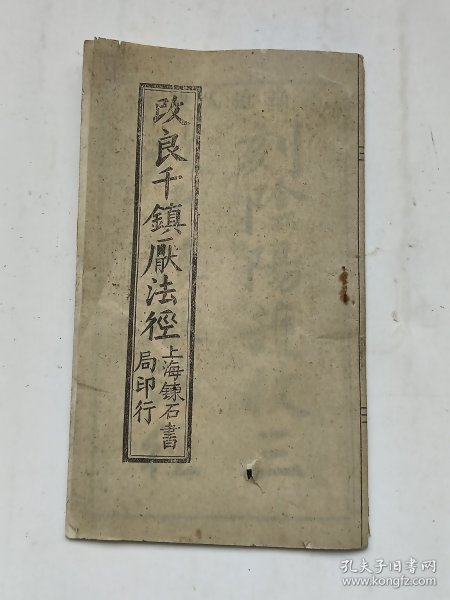 改良千鎮厭法徑
上海錬石書
局印行
孔夫子旧书网
www.kongfz.com